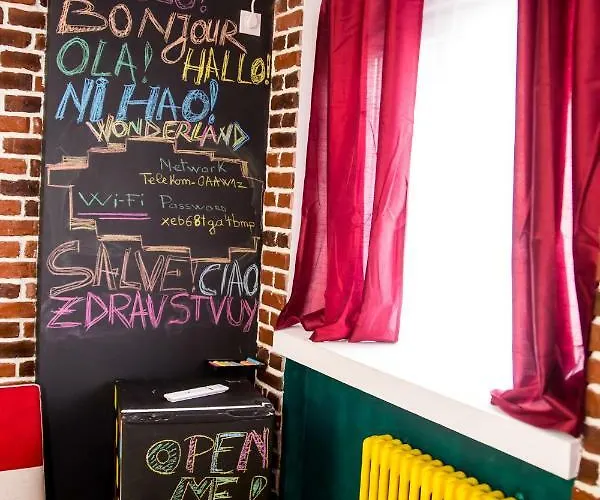 BONJOUR
OLA! HALLO!
NI HAO!
WONDERLAND
Network
Telekom-OAAW1Z
Wi-Fi Password
xeb68tga4bmp
SALVE! CIAO
ZDRAVSTVUY
OPEN
ME!